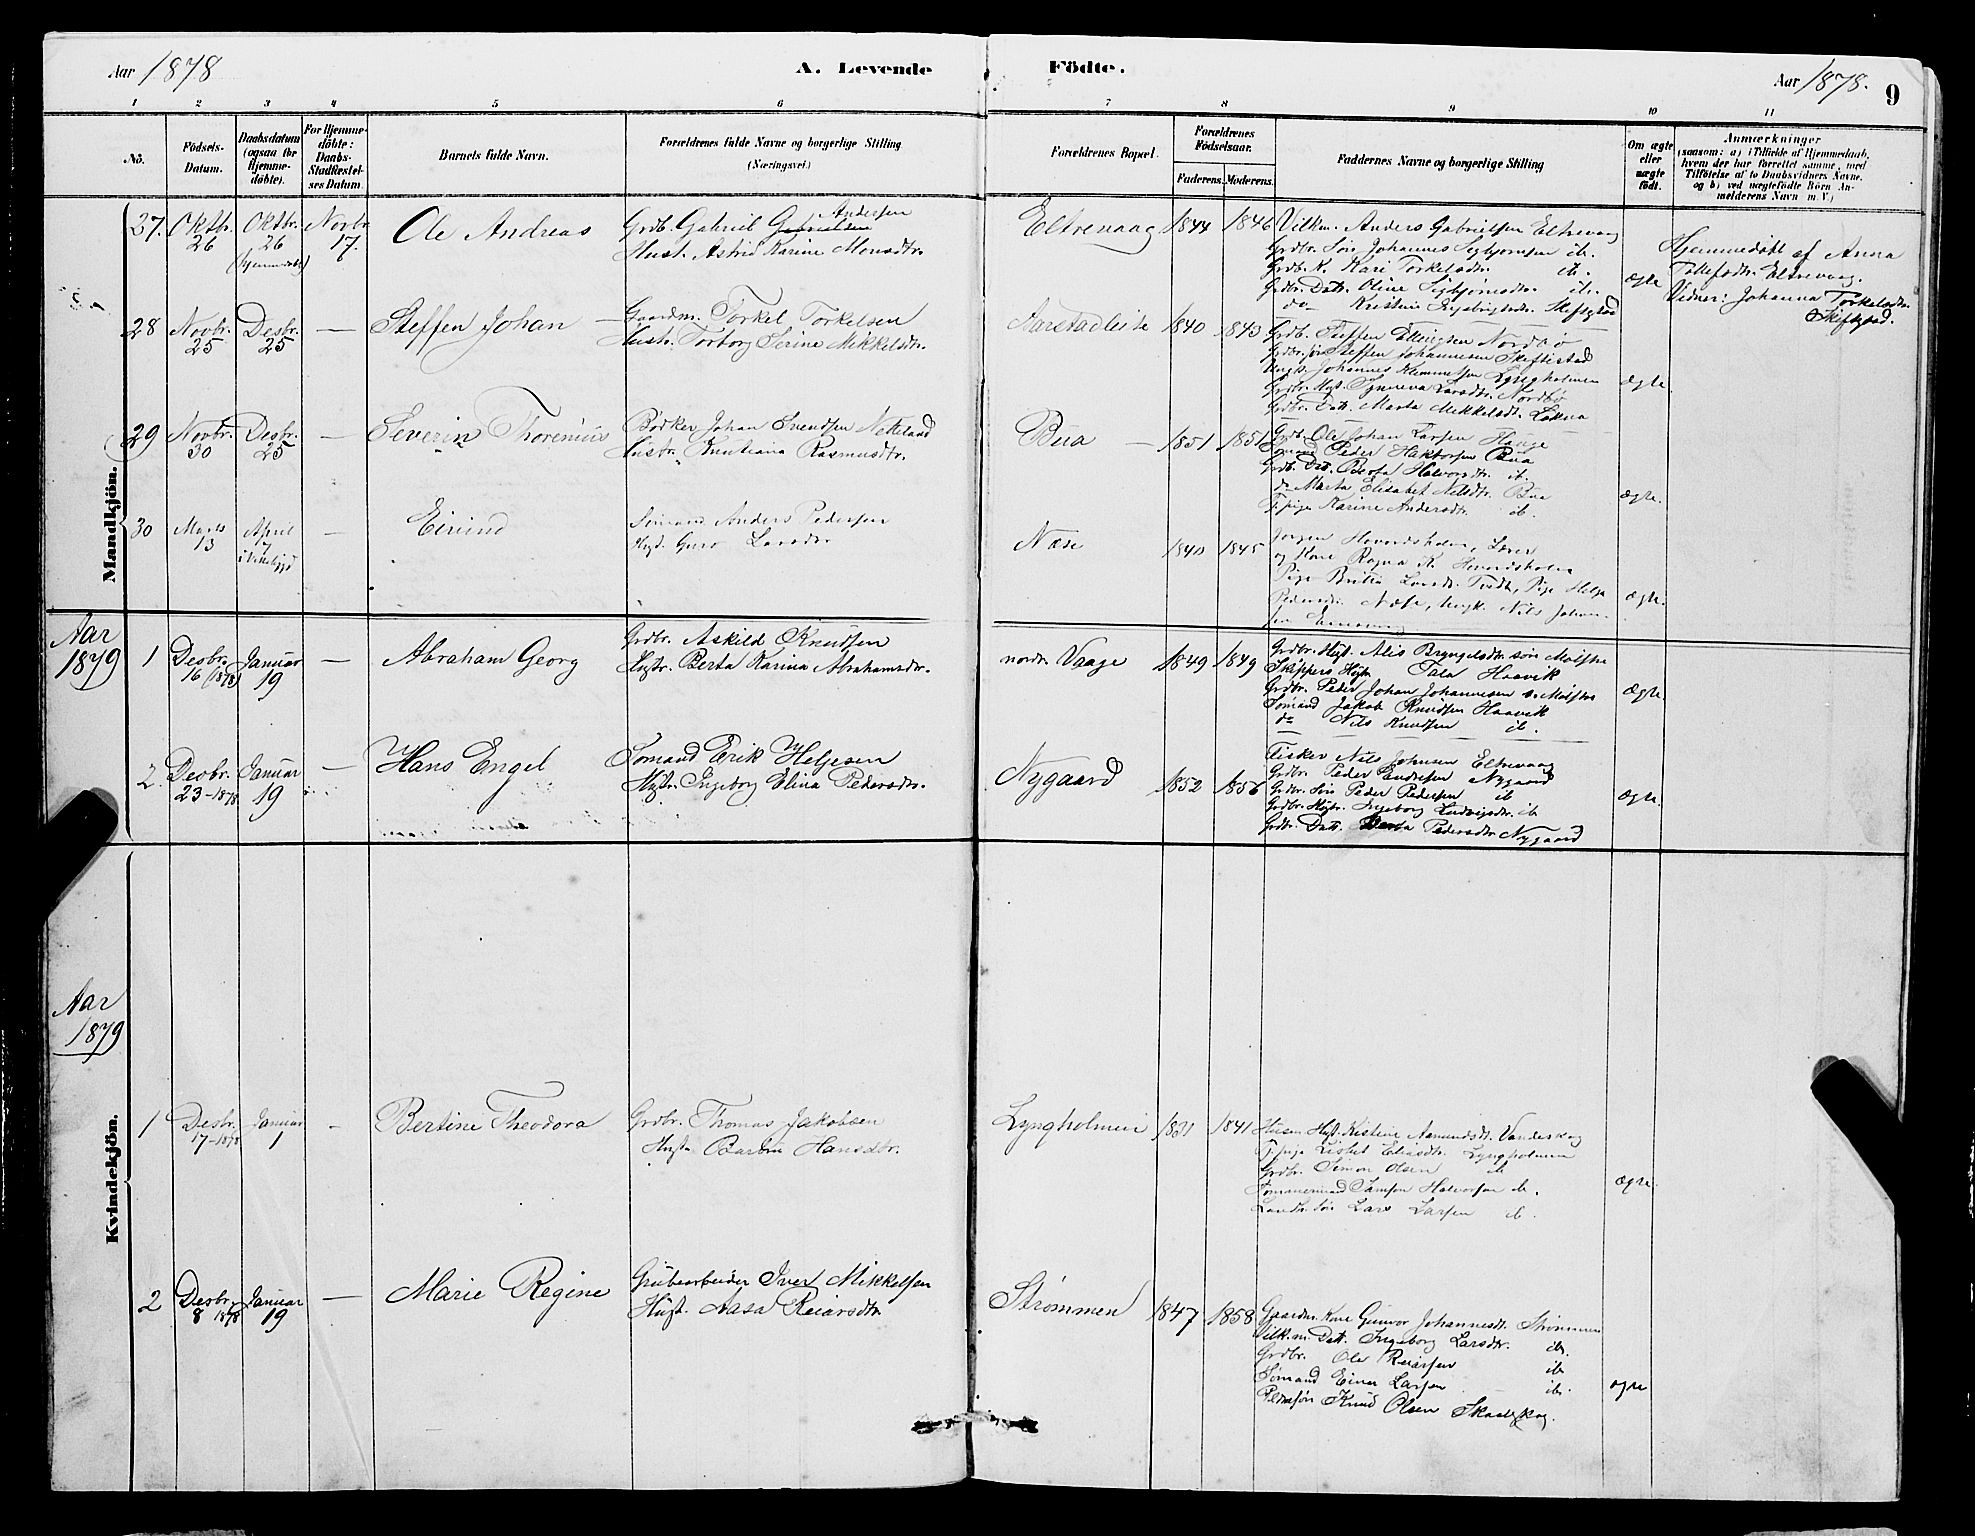 Aar 1878
A. Levende Födte.
Aar 1878. 9
1 2 3 4 5 6 7 8 9 10 11
No.
Födsels-Datum.
Daabsdatum (ogsaa for Hjemme-döbte).
For Hjemme-döbte: Daabs-Stadfæstel-ses Datum.
Barnets fulde Navn.
Forældrenes fulde Navne og borgerlige Stilling (Næringsvei)
Forældrenes Bopæl.
Forældrenes Födselsaar.
Faderens. Moderens.
Faddernes Navne og borgerlige Stilling
Om ægte eller uægte födt.
Anmærkninger
(saasom: a) i Tilfælde af Hjemmedaab, hvem der har forrettet samme, med Tilföielse af to Daabsvidners Navne, og b) ved uægtefödte Börn An-melderens Navn m. V.)
Mandkjön.
27. Oktbr. 26 Oktbr. 26 (hjemmedøbt) Novbr. 17. Ole Andreas
Grdb. Gabriel Gabrielsen Andersen
Hust. Astrid Karine Monsdtr.
Eltrevaag 1844 1846
Vilkm. Anders Gabrielsen Eltrevaag
Grdbr. Søn Johannes Sigbjørnsen ib.
Grdb. K. Kari Torkelsdtr. ib.
Grdbr. Datr. Oline Sigbjørnsdtr. ib.
do Kristine Ingebrigtsdtr. Skiftestad
ægte
Hjemmedøbt af Anna
Tollefsdtr. Eltrevaag.
Vidner: Johanna Torkelsdtr.
Skiftestad.
28 Novbr. 25 Desbr. 25 — Steffen Johan
Gaardm. Torkel Torkelsen
Hustr. Torborg Serine Mikkelsdtr.
Aarstadleite 1840 1843
Grdb. Steffen Ellingsen Nordbø
Grdbr. søn Steffen Johannesen Skiftestad
Ungk. Johannes Klemmetsen Lyngholmen
Grdbr. Hust. Synneva Larsdtr. Nordbø
Grdbr. Datt. Marta Mikkelsdt.
ægte.
29 Novbr. 30 Desbr. 25 — Severin Thorenius
Bødker Johan Svendsen Nekeland
Hustr. Kristiana Rasmusdtr.
Bua — 1851 1851
Grdb. Ole Johan Larsen Hauge
Sømand Peder Haktorsen Bua
Grdb. Dtr. Berta Halvorsdtr. ib.
do Marta Elisabet Nilsdtr. Bua
Tj.pige Karine Andersdtr. ib.
ægte.
30 Marts 13 April 7 — Eivind
Sømand Anders Pedersen
Hust. Guro Larsdtr
Næse 1840 1845
Jørgen Hovardsholm, Lærer
og Kone Ragna K. Hovardsholm
Pige Britta Larsdt. Pige Helga
Pedersdtr. Næse, Ungk. Nils Johan-
ægte.
Aar 1879
1 Desbr. 16 (1878) Januar 19 — Abraham Georg
Grdbr. Askild Knudsen
Hustr. Berta Karina Abrahamsdtr.
nordr. Vaage 1849 1849
Grdbr. Hust. Alis Bryngelsdtr. søn. Mølster
Skippers Hustr. Tala Haavik
Grdbr. Peder Johan Johannesen s. Mølster
Sømand Jakob Knudsen Haavik
do Nils Knudsen ib.
Ægte.
2. Desbr. 23-1878 Januar 19 — Hans Engel
Sømand Erik Helgesen
Hustr. Ingeborg Elina Pedersdtr.
Nygaard 1852 1856
Fisker Nils Johnsen Eltrevaag
Grdbr. Peder Endresen Nygaard
Grdbr. Søn Peder Pedersen ib
Grdbr. Hustr. Ingeborg Ludvigsdtr. ib
Grdbr. Datt. Berta Pedersdtr. Nygaard
Ægte.
Aar 1879
Kvindekjön.
1 Desbr. 17-1878 Januar 1 — Bertine Theodora
Grdbr. Thomas Jakobsen
Hust. Barbra Hansdtr.
Lyngholmen 1831 1841
Husm. Hust. Kistine Aamundsdt. Vandaskog
Tj.pige Lisbet Eliasdtr. Lyngholmen
Grdbr. Simon Olsen ib
Sømand Samson Halvorsen ib.
Søn Lars Larsen ib.
ægte.
2 Desbr. 8 1878 Januar 19 — Marie Regine
Grubearbeider Iver Mikkelsen
Hust. Aasa Reiarsdtr.
Strømmen 1847 1858
Gaardm. Kone Gunvor Johannesdt. Strømmen
Vilk.m. Datt. Ingeborg Larsdtr. ib.
Grdbr. Ole Reiarsen ib
Sømand Einer Larsen ib.
Knud Olsen
ægte